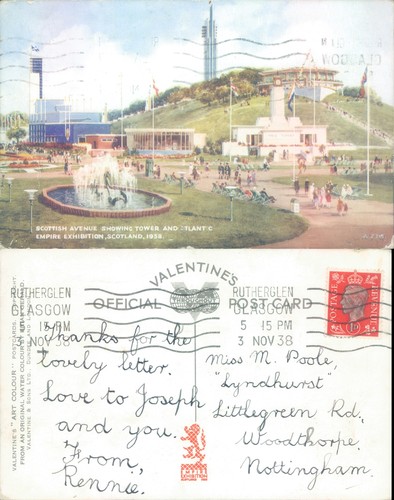 SCOTTISH AVENUE SHOWING TOWER AND ATLANTIC
EMPIRE EXHIBITION, SCOTLAND, 1938.
VALENTINE'S "ART COLOUR" POSTCARDS
FROM AN ORIGINAL WATER COLOUR
VALENTINE & SONS LTD.
VALENTINES
OFFICIAL POST CARD
RUTHERGLEN
GLASGOW
5 15 PM
3 NOV 38
RUTHERGLEN
GLASGOW
5 15 PM
3 NOV 38
POSTAGE
REVENUE
Thanks for the
lovely letter.
Love to Joseph
and you.
From,
Rennie.
Miss M. Poole,
"Lyndhurst"
Littlegreen Rd,
Woodthorpe
Nottingham.